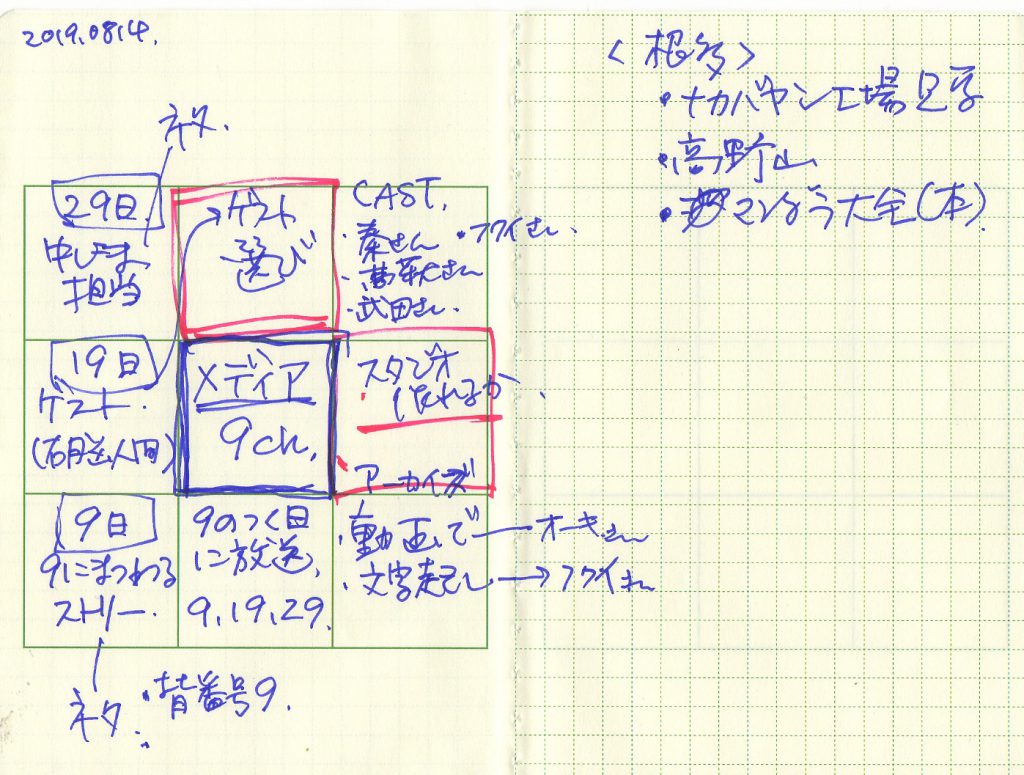 2019.0814.
ネタ.
29日.
担当
ゲスト
選び
CAST.
・秦さん ・フクイさん.
・武田さん.
19日
ゲスト.
(右脳人間)
メディア
9ch.
スタジオ
アーカイブ
9日
9にまつわる
ストリー.
9のつく日
に放送.
9.19.29.
・動画で オーキさん
・文字起し→フクイさん
ネタ.
・背番号9.
<根多>
・ナカバヤシ工場見学
・高野山
・マンダラ大全(本)